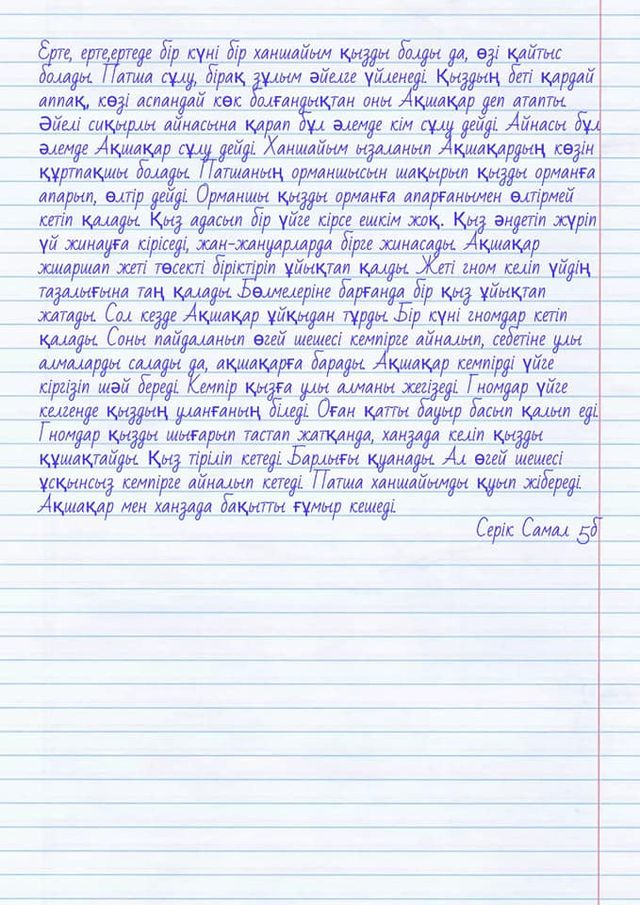 Ерте, ерте,ертеде бір күні бір ханшайым қызды болды да, өзі қайтыс
болады. Патша сұлу, бірақ зұлым әйелге үйленеді. Қыздың беті қардай
аппақ, көзі аспандай көк болғандықтан оны Ақшақар деп атапты.
Әйелі сиқырлы айнасына қарап бұл әлемде кім сұлу дейді. Айнасы бұл
әлемде Ақшақар сұлу дейді. Ханшайым ызаланып Ақшақардың көзін
құртпақшы болады. Патшаның орманшысын шақырып қызды орманға
апарып, өлтір дейді. Орманшы қызды орманға апарғанымен өлтірмей
кетіп қалады. Қыз адасып бір үйге кірсе ешкім жоқ. Қыз әндетіп жүріп
үй жинауға кіріседі, жан-жануарларда бірге жинасады. Ақшақар
жшаршап жеті төсекті біріктіріп ұйықтап қалды. Жеті гном келіп үйдің
тазалығына таң қалады. Бөлмелеріне барғанда бір қыз ұйықтап
жатады. Сол кезде Ақшақар ұйқыдан тұрды. Бір күні гномдар кетіп
қалады. Соны пайдаланып өгей шешесі кемпірге айналып, себетіне улы
алмаларды салады да, ақшақарға барады. Ақшақар кемпірді үйге
кіргізіп шәй береді. Кемпір қызға улы алманы жегізеді. Гномдар үйге
келгенде қыздың уланғаның біледі. Оған қатты бауыр басып қалып еді.
Гномдар қызды шығарып тастап жатқанда, ханзада келіп қызды
құшақтайды. Қыз тіріліп кетеді. Барлығы қуанады. Ал өгей шешесі
ұсқынсыз кемпірге айналып кетеді. Патша ханшайымды қуып жібереді.
Ақшақар мен ханзада бақытты ғұмыр кешеді.
Серік Самал 5б